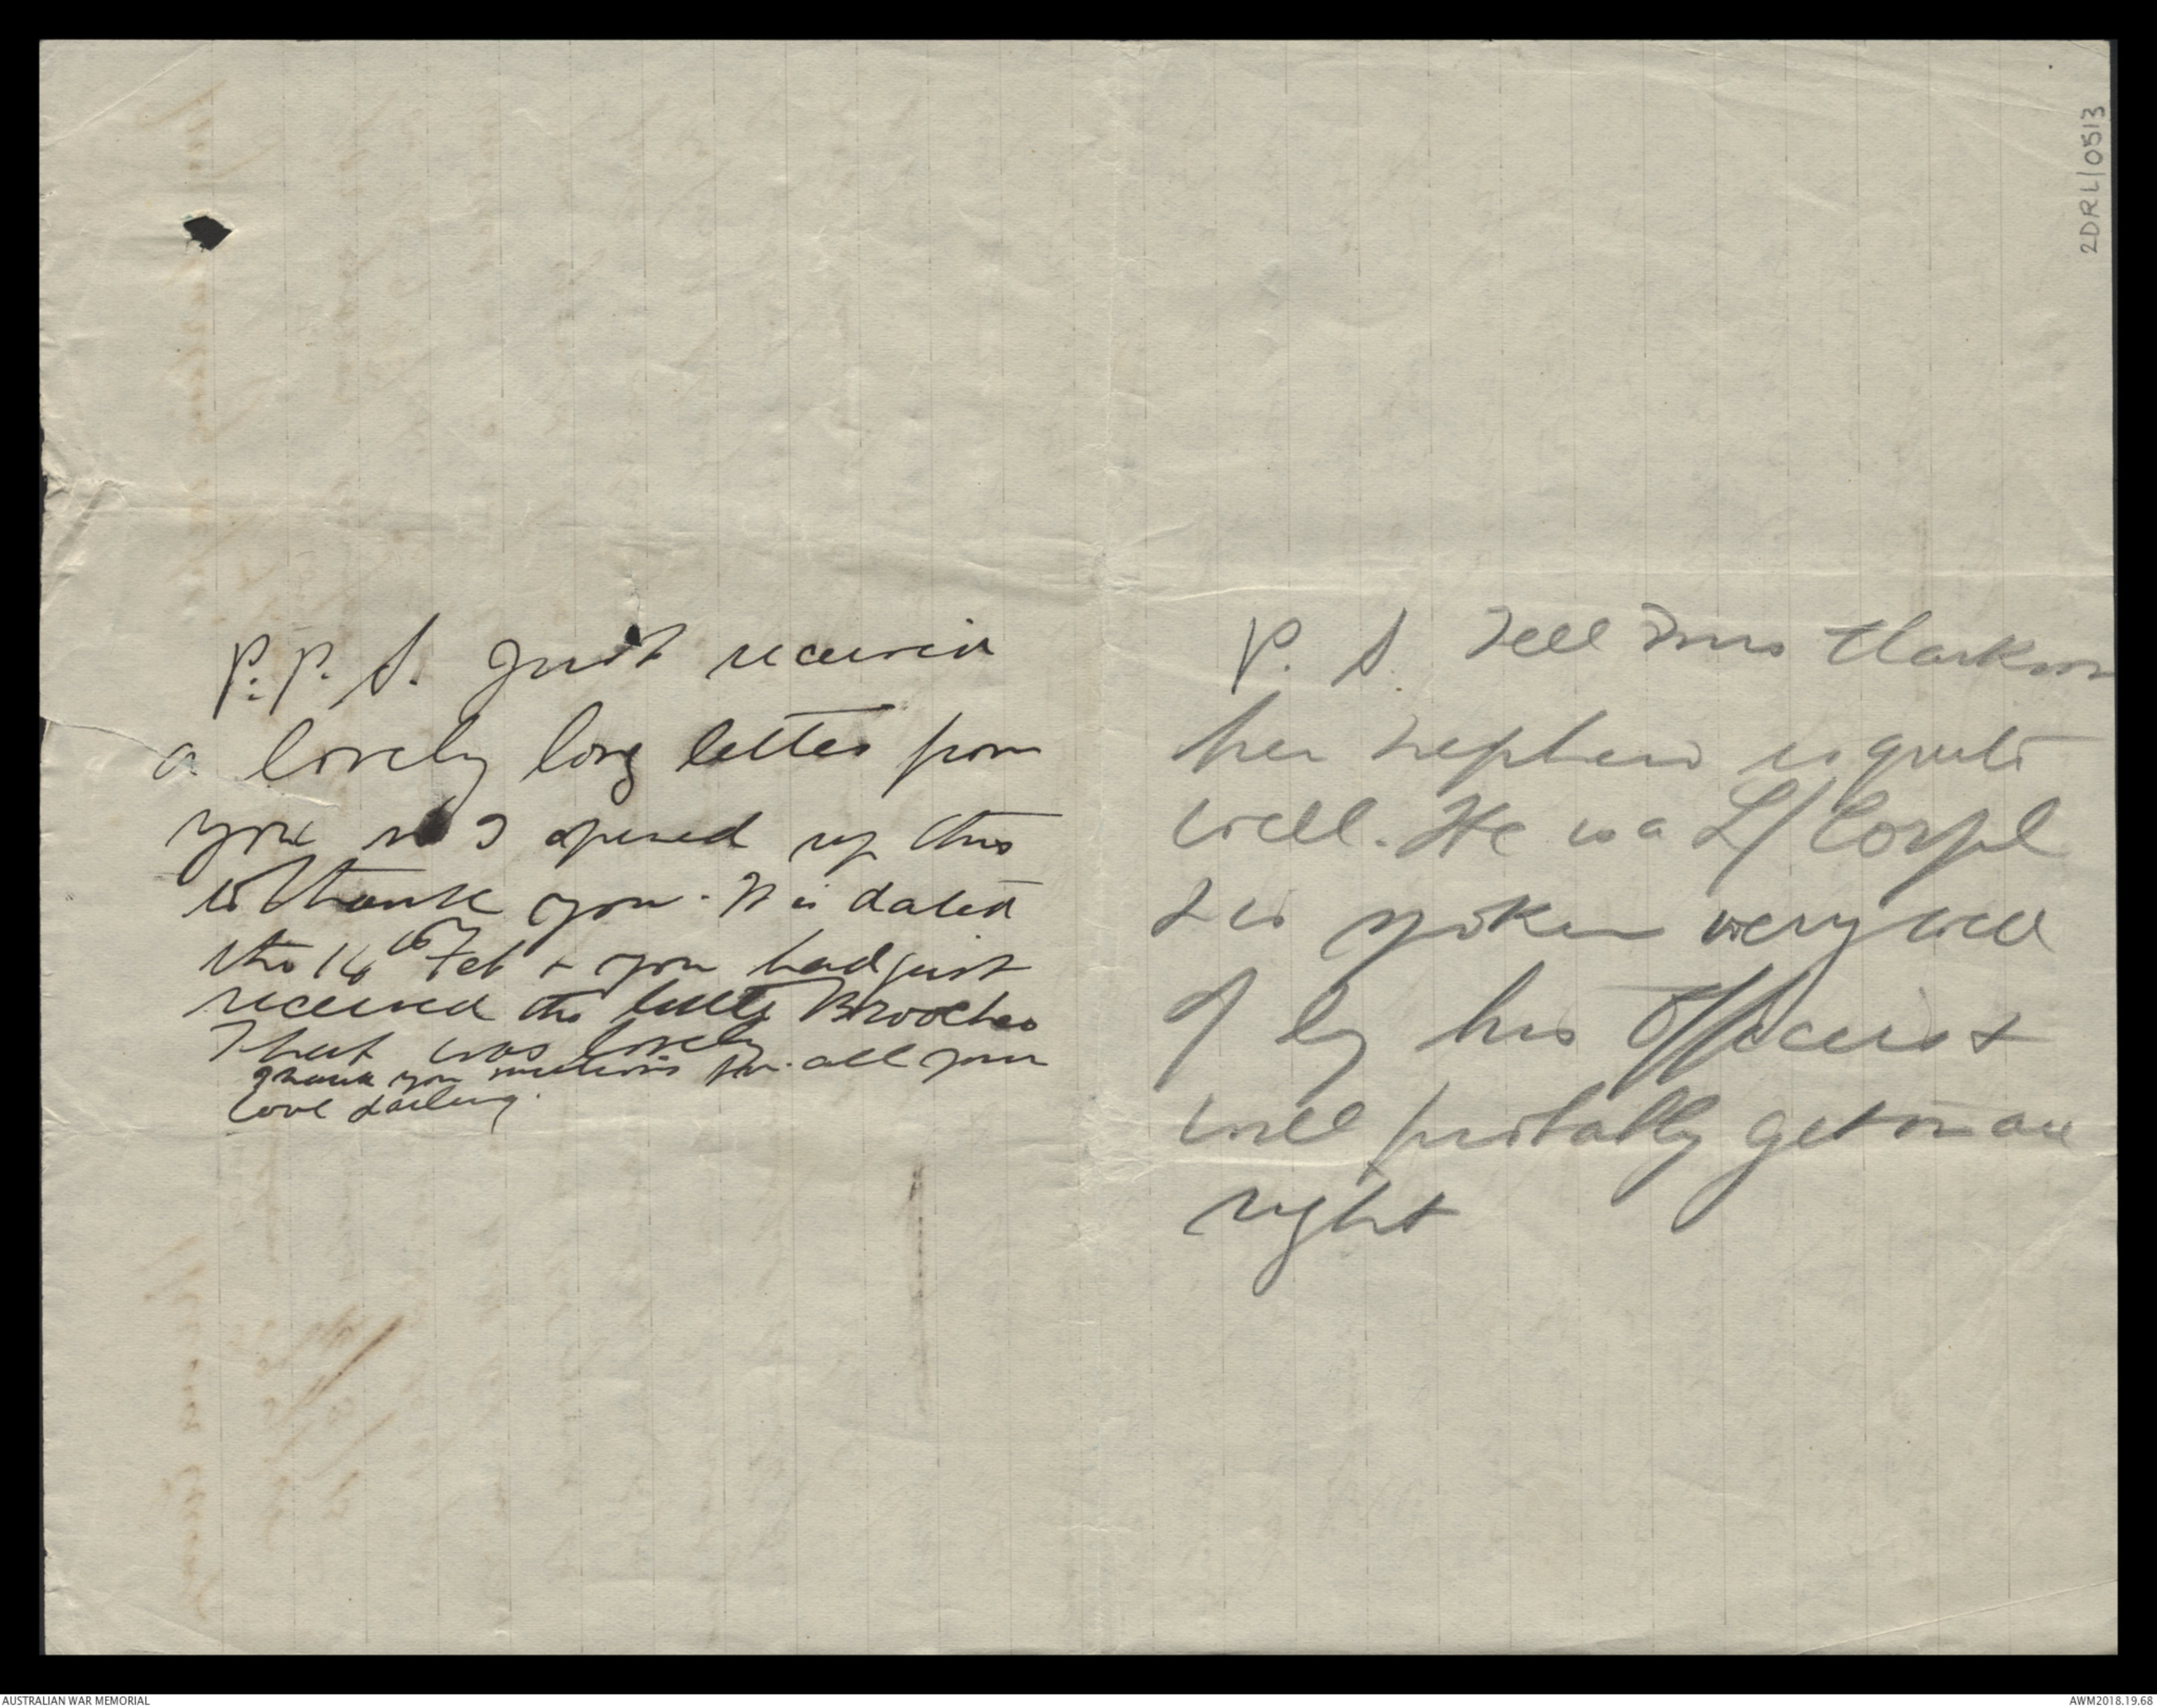 P.P.S. Just received
a lovely long letter from
you so I opened up this
to thank you. It is dated
the 16th Feb & you had just
received the little Brooches
That was lovely
Thank you millions for all your
love darling.
P.S. Tell Mrs Clarkson
her nephew is quite
well. He is a L/Corpl
& is spoken very well
of by his Officers &
will probably get on all
right
2DRL/0513
AUSTRALIAN WAR MEMORIAL
AWM2018.19.68